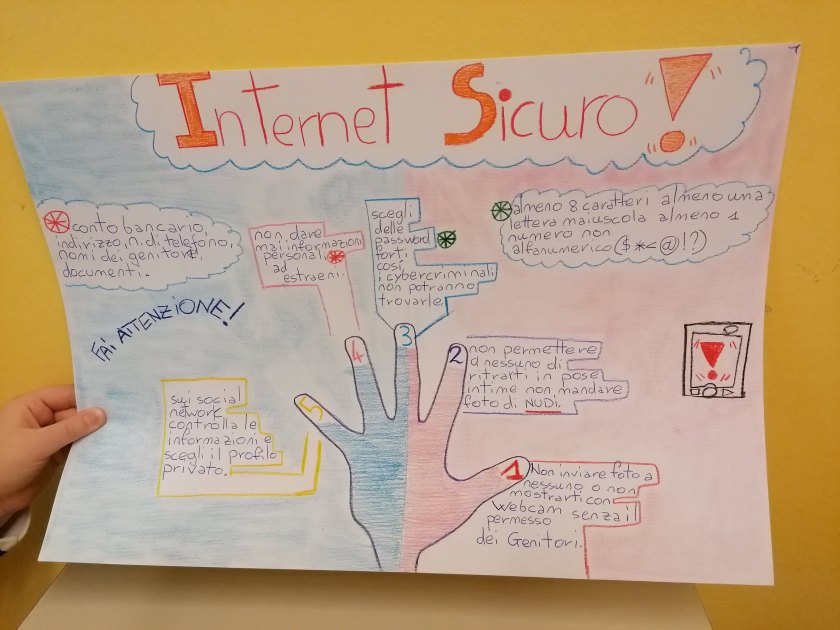 Internet Sicuro!
conto bancario,
indirizzo, n. di telefono,
nomi dei genitori,
documenti.
FAI ATTENZIONE!
non dare
mai informazioni
personali
ad
estraeni.
scegli
delle
password
forti
così
i cybercriminali
non potranno
trovarle.
almeno 8 caratteri almeno una
lettera maiuscola almeno 1
numero non
alfanumerico ($*<@!?)
4
3
2
non permettere
a nessuno di
ritrarti in pose
intime non mandare
foto di NUDI.
5
sui social
network
controlla le
informazioni e
scegli il profilo
privato.
1
Non inviare foto a
nessuno o non
mostrarti con
webcam senza il
permesso
dei Genitori.